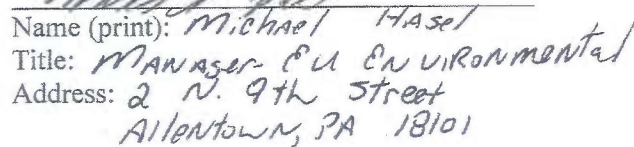 Name (print): Michael Hasel
Title: Manager EU Environmental
Address: 2 N. 9th Street
Allentown, PA 18101